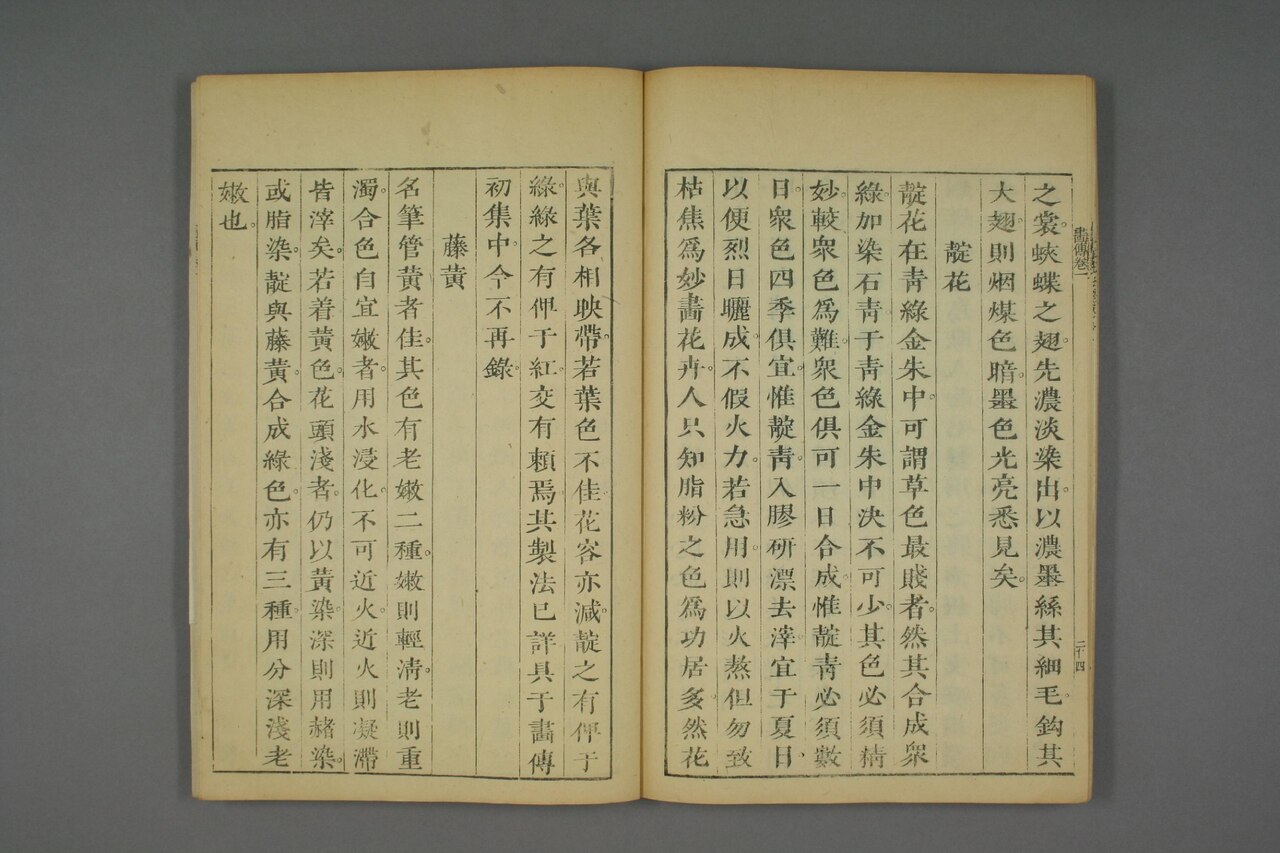 畫傳卷一
二十四
之裳。蛺蝶之翅。先濃淡染出。以濃墨絲其細毛。鈎其
大翅。則烟煤色暗。墨色光亮悉見矣。
靛花
靛花在靑綠金朱中。可謂草色最賤者。然其合成衆
綠。加染石靑。于靑綠金朱中。决不可少。其色必須精
妙。較衆色爲難。衆色俱可一日合成。惟靛靑必須數
日。衆色四季俱宜。惟靛靑。入膠研漂去滓。宜于夏日。
以便烈日曬成。不假火力。若急用。則以火熬。但勿致
枯焦爲妙。畫花卉。人只知脂粉之色。爲功居多。然花
與葉各相映帶。若葉色不佳。花容亦減。靛之有俾于
綠。綠之有俾于紅。交有賴焉。其製法已詳具于畫傳
初集中。今不再錄。
藤黃
名筆管黃者佳。其色有老嫩二種。嫩則輕淸。老則重
濁。合色自宜嫩者。用水浸化。不可近火。近火則凝滯
皆滓矣。若着黃色。花頭淺者。仍以黃染。深則用赭染。
或脂染。靛與藤黃。合成綠色。亦有三種。用分深淺老
嫩也。